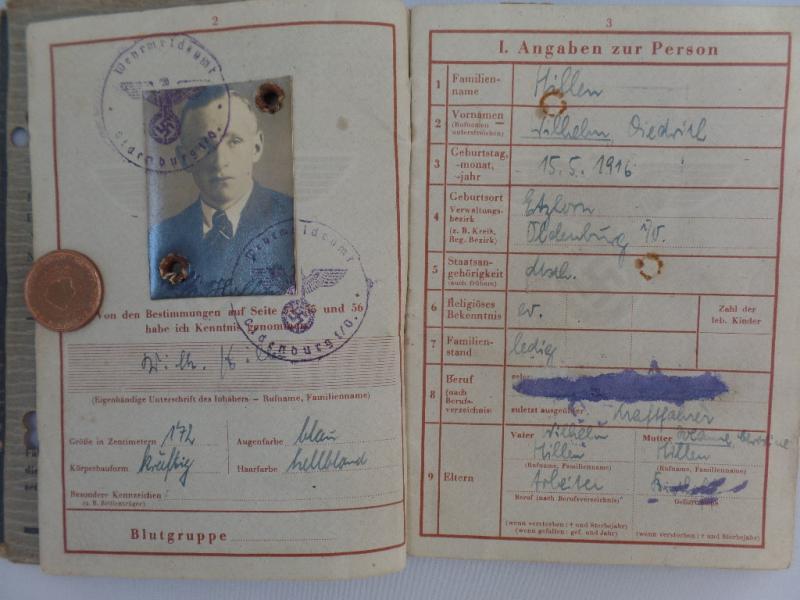 2
Wehrmeldeamt
Oldenburg i/O.
Wehrmeldeamt
Oldenburg i/O.
Von den Bestimmungen auf Seite und 56
habe ich Kenntnis genommen
Wilh.
(Eigenhändige Unterschrift des Inhabers – Rufname, Familienname)
Größe in Zentimetern 172
Augenfarbe: blau
Körperbauform: kräftig
Haarfarbe hellblond
Besondere Kennzeichen:
(z. B. Brillenträger)
Blutgruppe
3
I. Angaben zur Person
1 Familien-
name
Hillen
2 Vornamen
(Rufnamen
unterstreichen)
Wilhelm, Diedrich
3 Geburtstag,
-monat,
-jahr
15. 5. 1916
4 Geburtsort
Verwaltungs-
bezirk
(z. B. Kreis,
Reg. Bezirk)
Etzhorn
Oldenburg i/O.
5 Staatsan-
gehörigkeit
(auch frühere)
dtsch.
6 Religiöses
Bekenntnis
ev.
Zahl der
leb. Kinder
7 Familien-
stand
ledig
8 Beruf
(nach
Berufs-
verzeichnis)
zuletzt ausgeübter
Kraftfahrer
9 Eltern
Vater Wilhelm
Hillen
(Rufname, Familienname)
Arbeiter
Beruf (nach Berufsverzeichnis)
(wenn verstorben: † und Sterbejahr)
(wenn gefallen: gef. und Jahr)
Mutter
Hillen
(Rufname, Familienname)
Geburtsname
(wenn verstorben: † und Sterbejahr)